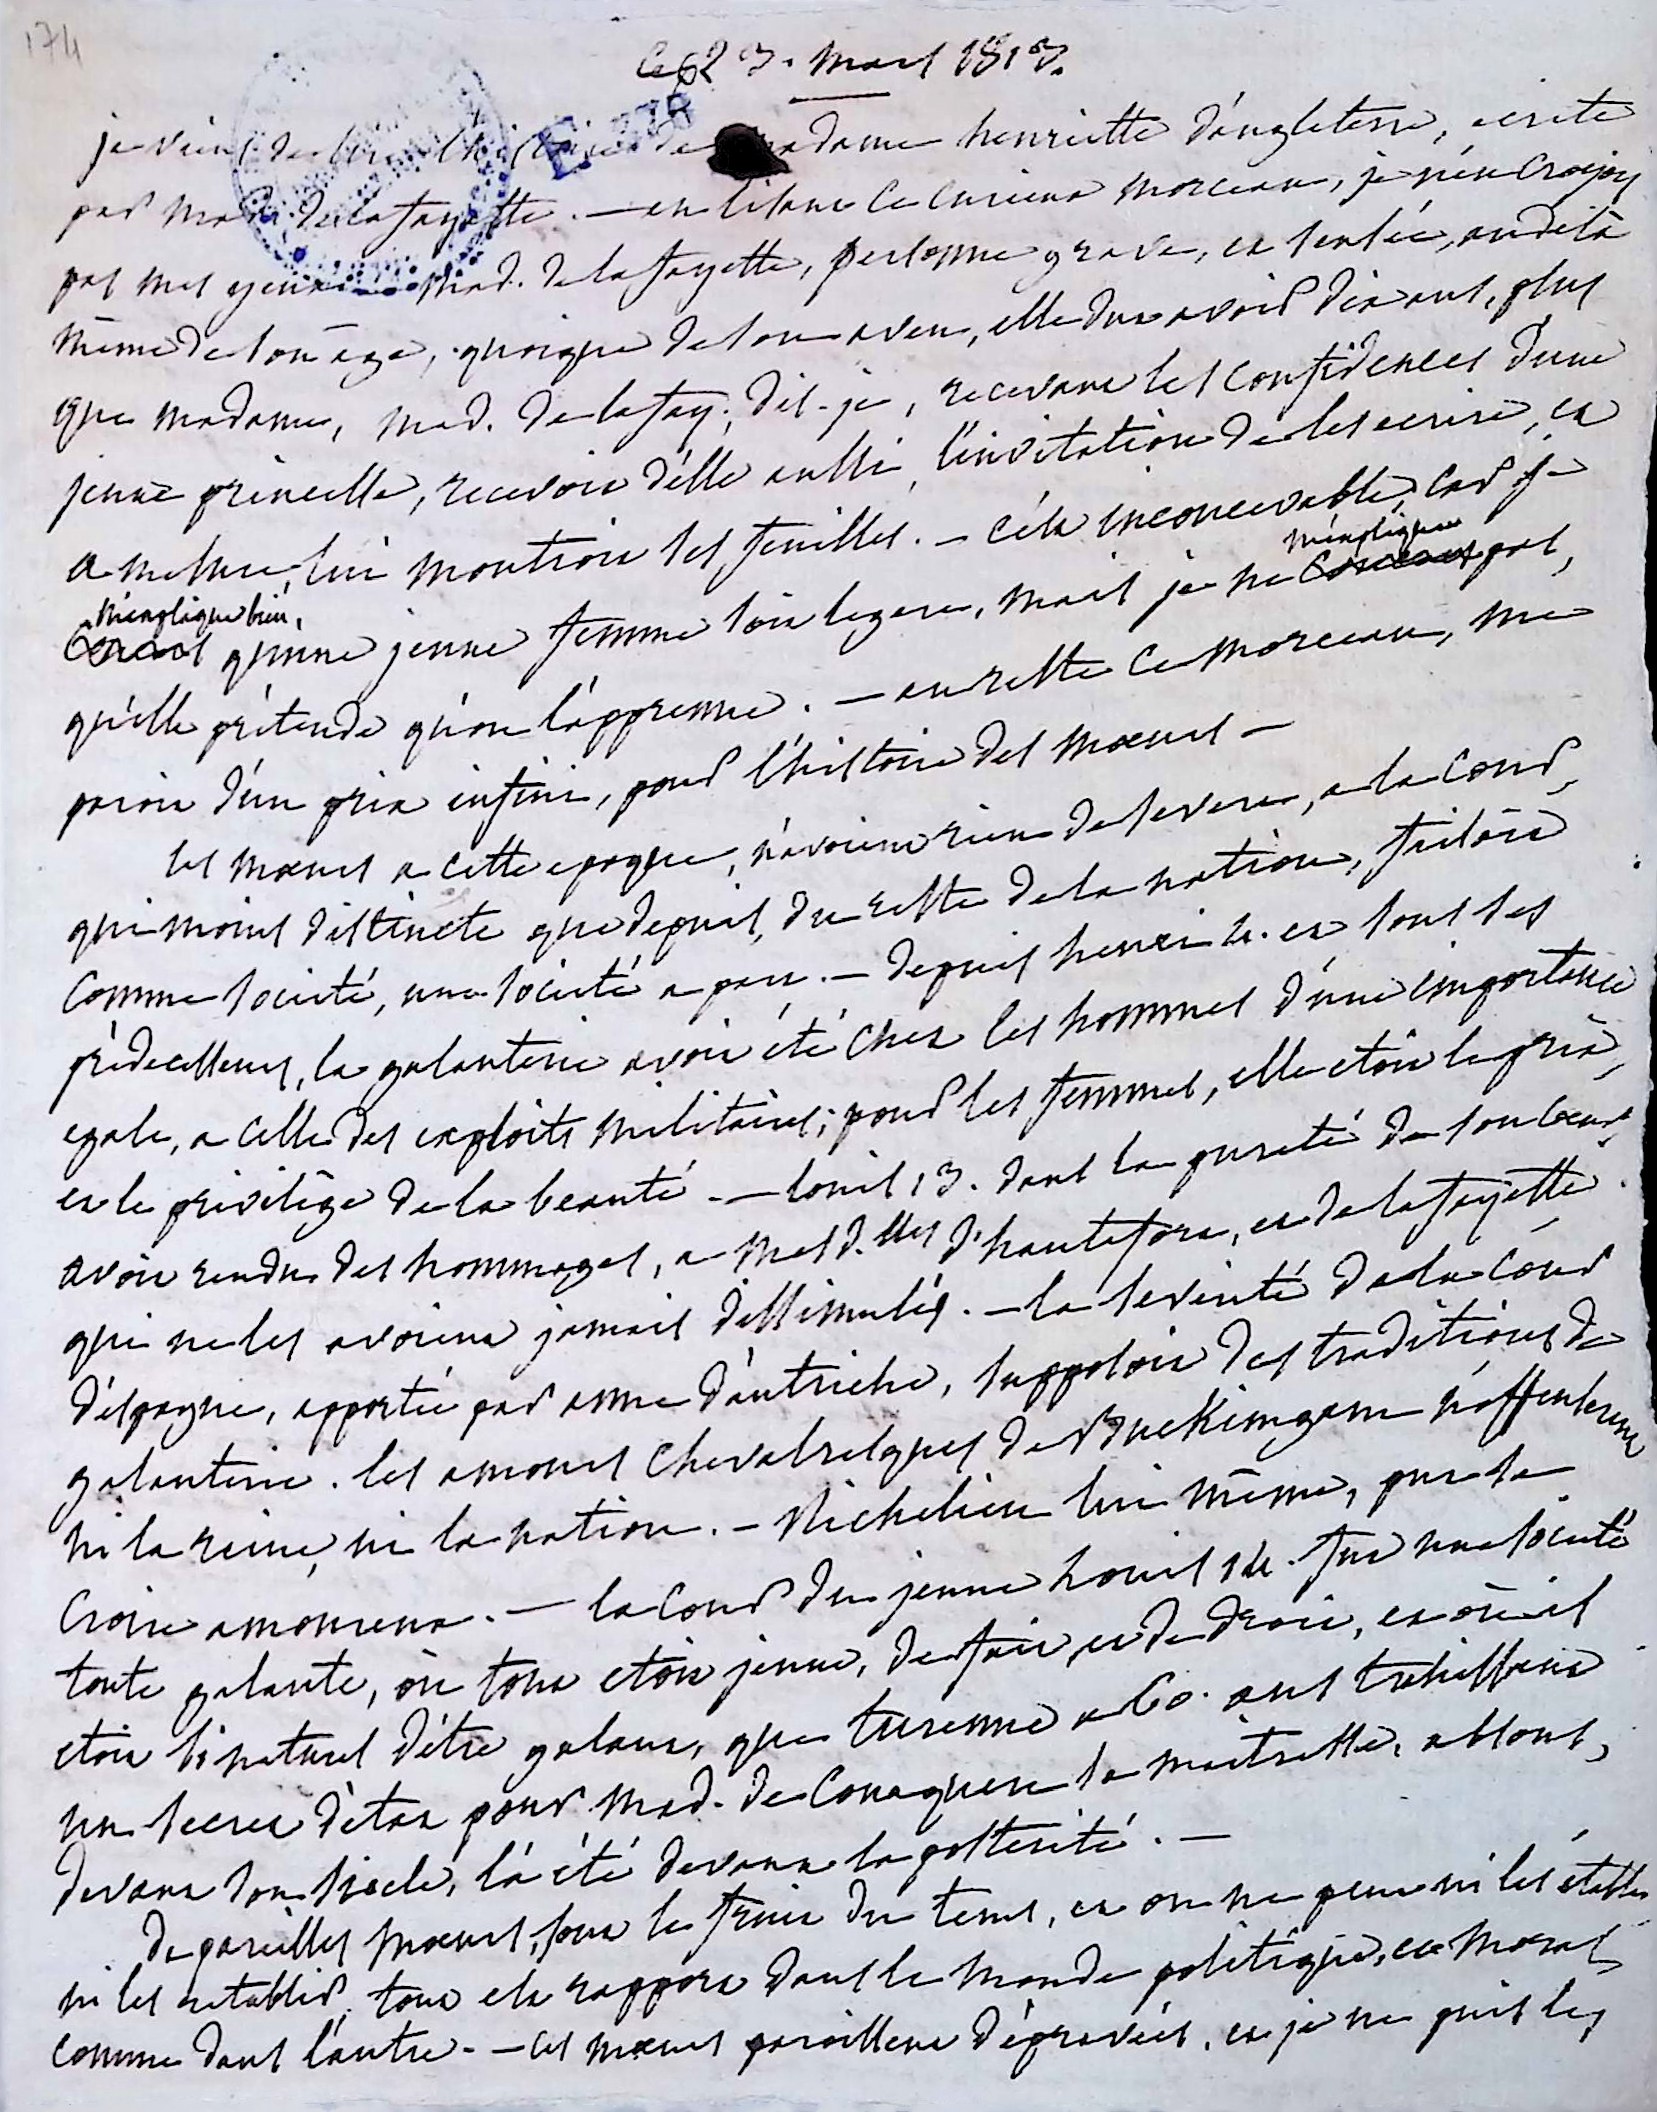 174
Ce 23. mars 1813.
je viens de lire l'histoire de madame henriette d'angleterre, ecrite
par mad. de la fayette. — en lisant ce curieux morceau, je n'en croyois
pas mes yeux. mad. de la fayette, personne grave, et sensée, au delà
même de son age, quoique de son aveu, elle dut avoir dix ans, plus
que madame, mad. de la fay. dis-je, recevant les confidences d'une
jeune princesse, recevoit d'elle aussi, l'invitation de les ecrire, et
a mesure, lui montroit ses feuilles. — c'est inconcevable, car je
m'explique bien, qu'une jeune femme soit legere, mais je ne m'explique pas,
qu'elle prétende qu'on l'apprenne. — au reste ce morceau, me
paroit d'un prix infini, pour l'histoire des mœurs —
les mœurs a cette epoque, n'avoient rien de severe, a la cour,
qui moins distincte que depuis, du reste de la nation, faisoit
comme société, une société a part. — depuis henri 4. et tous ses
prédecesseurs, la galanterie avoit été chez les hommes d'une importance
egale, a celle des exploits militaires; pour les femmes, elle etoit le prix,
et le privilège de la beauté. — louis 13. dans la pureté de son cœur,
avoit rendu des hommages, a mesd.lles d'hautefort, et de la fayette
qui ne les avoient jamais dissimulés. — la severité de la cour
d'espagne, apportée par anne d'autriche, supposoit des traditions de
galanterie. les amours chevalresques de Buckingam n'offenserent
ni la reine, ni la nation. — Richelieu lui même, put se
croire amoureux. — la cour du jeune Louis 14. fut une société
toute galante, où tout etoit jeune, de fait, et de droit, et où il
etoit si naturel d'être galant, que turenne a 60. ans trahissant
un secret d'état pour mad. de Coraquere sa maitresse, absous,
devant son siecle, l'a été devant la posterité. —
de pareilles mœurs, sont le fruit du tems, et on ne peut ni les établir
ni les retablir, tout est rapport dans le monde politique, et moral,
comme dans l'autre. — ces mœurs paroissent dépravées, et je ne puis les